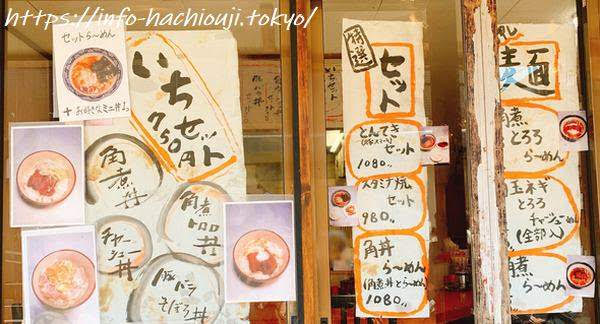 https://info-hachiouji.tokyo/
セットら〜めん
+ お好きなミニ丼1つ
いちセット
750円
角煮丼
チャーシュー丼
豚バラ
そぼろ丼
特選
セット
とんてき
セット
1080.
スタミナ焼
セット
980.
角丼
ら〜めん
(角煮丼とら〜めん)
1080.
麺
角煮
とろろ
ら〜めん
玉ネギ
とろろ
チャーシューめん
(全部入)
角煮
ら〜めん